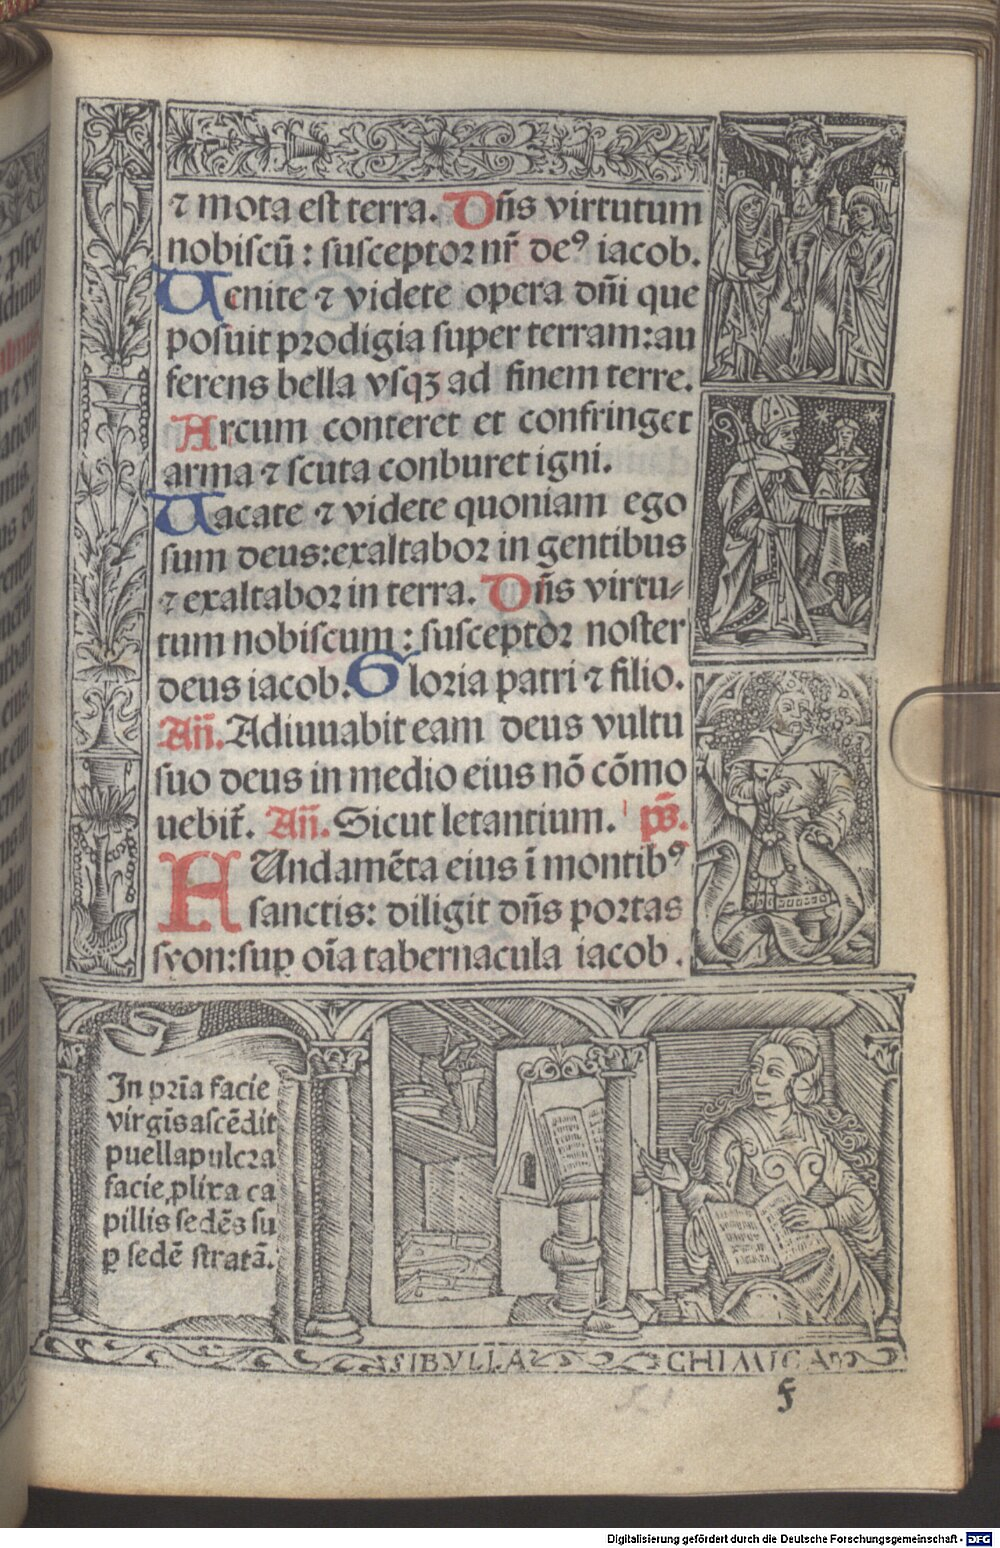 ⁊ mota est terra. Dñs virtutum
nobiscū : susceptor nr̄ de⁹ iacob.
Uenite ⁊ videte opera dñi que
posuit prodigia super terram: au
ferens bella vsqꝫ ad finem terre.
Arcum conteret et confringet
arma ⁊ scuta conburet igni.
Uacate ⁊ videte quoniam ego
sum deus: exaltabor in gentibus
⁊ exaltabor in terra. Dñs virtu⸗
tum nobiscum : susceptor noster
deus iacob. Gloria patri ⁊ filio.
Añ. Adiuuabit eam deus vultu
suo deus in medio eius nō cōmo
uebit̄. Añ. Sicut letantium. ps̄.
FUndamēta eius ī montib⁹
sanctis: diligit dñs portas
syon: suꝑ oīa tabernacula iacob.
In prīa facie
virgīs ascēdit
puella pulcra
facie, ꝓlixa ca
pillis sedēs su
ꝑ sedē stratā.
SIBVLLA CHIMICA
f
Digitalisierung gefördert durch die Deutsche Forschungsgemeinschaft - DFG